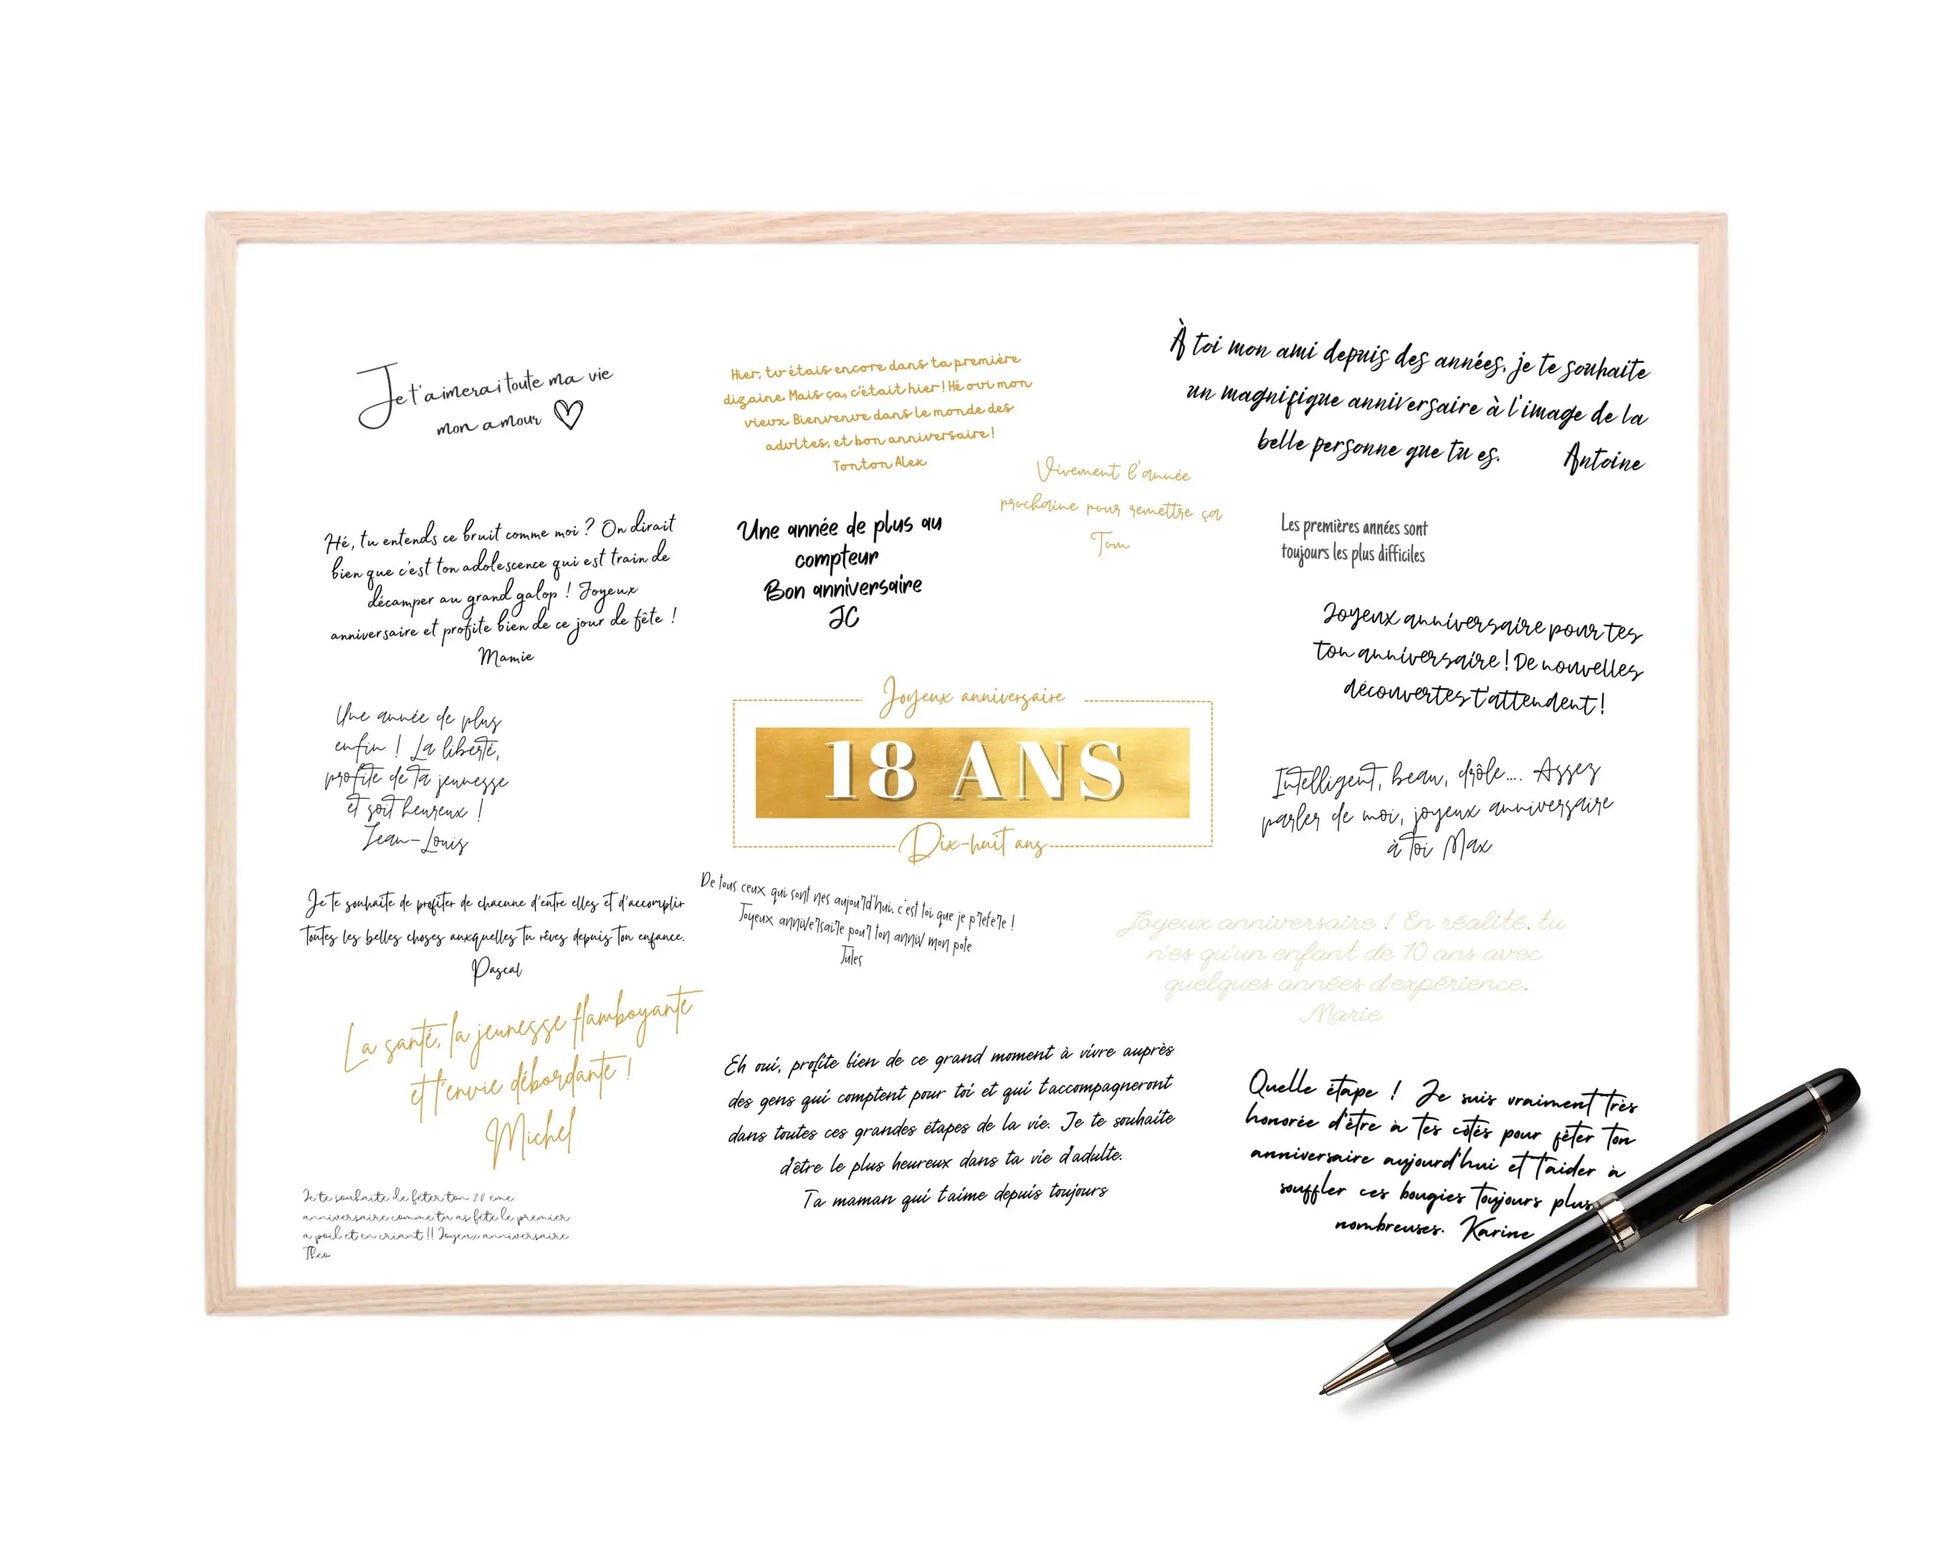 Je t'aimerai toute ma vie
mon amour
Hier, tu étais encore dans ta première
dizaine. Mais ça, c'était hier ! Hé oui mon
vieux. Bienvenue dans le monde des
adultes, et bon anniversaire !
Tonton Alex
À toi mon ami depuis des années, je te souhaite
un magnifique anniversaire à l'image de la
belle personne que tu es. Antoine
Vivement l'année
prochaine pour remettre ça
Tom
Hé, tu entends ce bruit comme moi ? On dirait
bien que c'est ton adolescence qui est train de
décamper au grand galop ! Joyeux
anniversaire et profite bien de ce jour de fête !
Mamie
Une année de plus au
compteur
Bon anniversaire
JC
Les premières années sont
toujours les plus difficiles
Joyeux anniversaire pour tes
ton anniversaire ! De nouvelles
découvertes t'attendent !
Une année de plus
enfin ! La liberté,
profite de ta jeunesse
et soit heureux !
Jean-Louis
Joyeux anniversaire
18 ANS
Dix-huit ans
Intelligent, beau, drôle.... Assez
parler de moi, joyeux anniversaire
à toi Max
Je te souhaite de profiter de chacune d'entre elles et d'accomplir
toutes les belles choses auxquelles tu rêves depuis ton enfance.
Pascal
De tous ceux qui sont nes aujourd'hui. c'est toi que je prefere !
Joyeux anniversaire pour ton anniv mon pote
Jules
Joyeux anniversaire ! En réalité, tu
n'es qu'un enfant de 10 ans avec
quelques années d'expérience.
Marie
La santé, la jeunesse flamboyante
et l'envie débordante !
Michel
Eh oui, profite bien de ce grand moment à vivre auprès
des gens qui comptent pour toi et qui t'accompagneront
dans toutes ces grandes étapes de la vie. Je te souhaite
d'être le plus heureux dans ta vie d'adulte.
Ta maman qui t'aime depuis toujours
Quelle étape ! Je suis vraiment très
honorée d'être à tes côtés pour fêter ton
anniversaire aujourd'hui et t'aider à
souffler ces bougies toujours plus
nombreuses. Karine
Je te souhaite de feter ton 20 eme
anniversaire comme tu as fete le premier
a poil et en criant !! Joyeux anniversaire
Theo